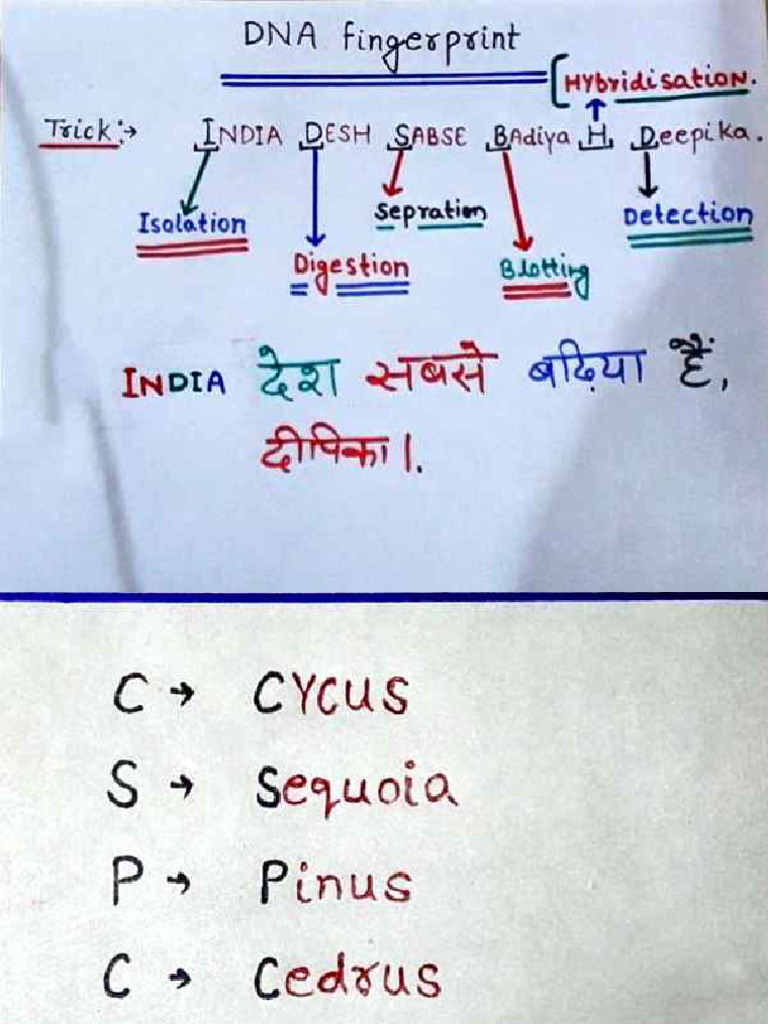 DNA fingerprint
HYbridisation.
Trick:→ INDIA DESH SABSE BAdiya H Deepika.
Isolation Sepration Detection
Digestion Blotting
INDIA देश सबसे बढ़िया हैं,
दीपिका।.
C → CYCUS
S → Sequoia
P → Pinus
C → Cedrus